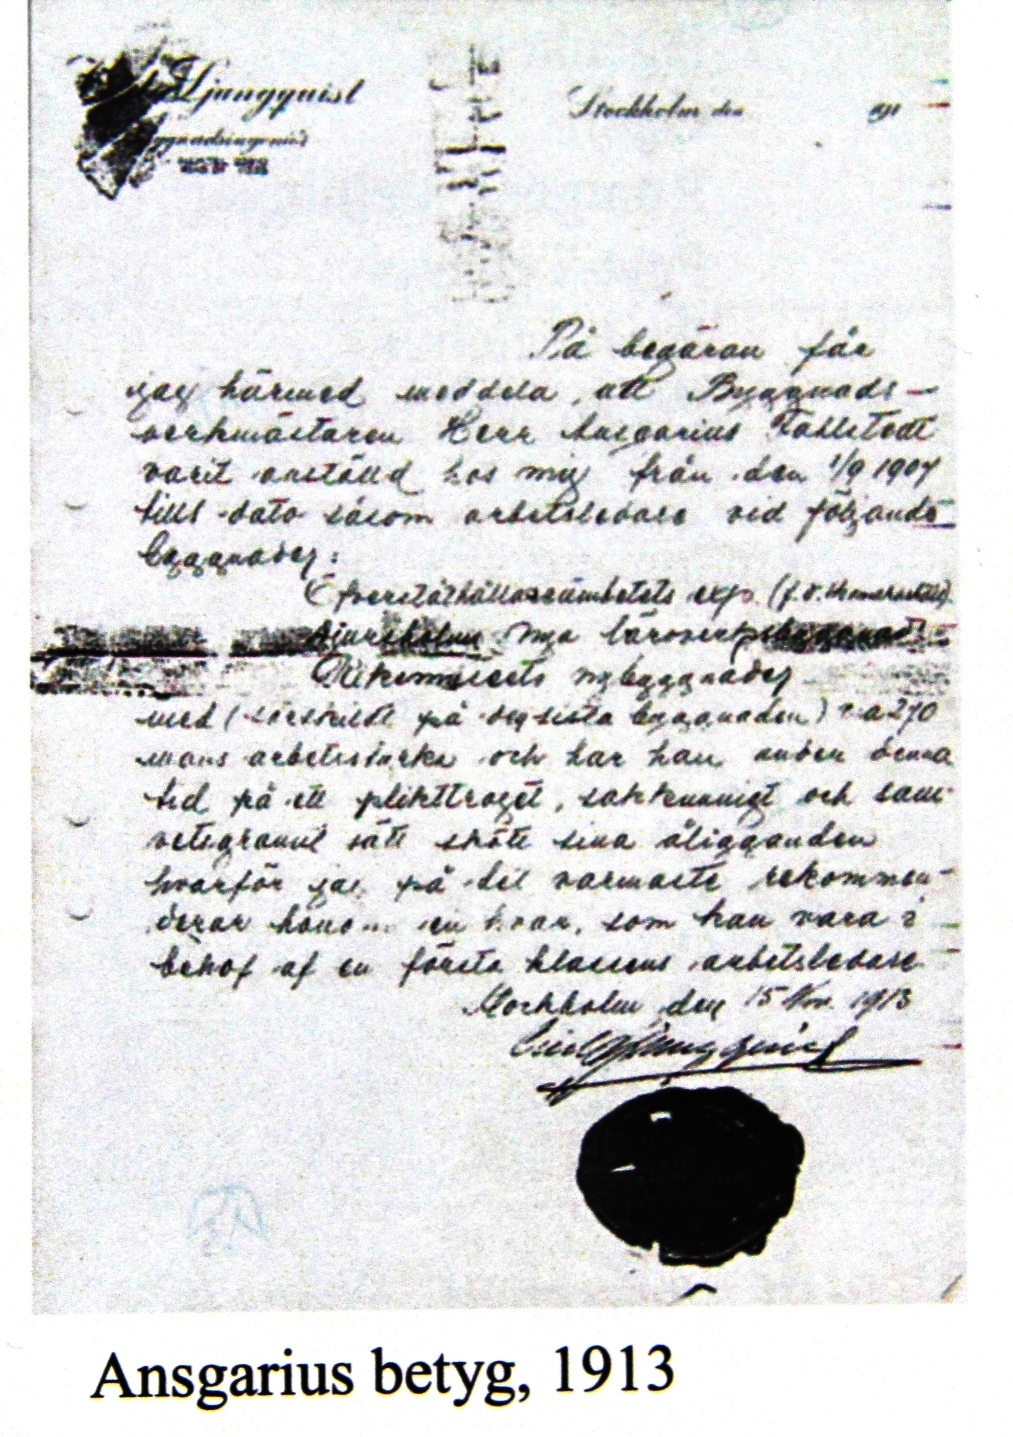 Ljungquist
Stockholm den 191
På begäran får
jag härmed meddela, att Byggnads-
verkmästaren Herr Ansgarius Fahlstedt
varit anställd hos mig från den 1/9 1907
tills dato såsom arbetsledare vid följande
byggnader:
Öfverståthållareämbetets exp.
Djursholms nya läroverksbyggnad
nybyggnader
med (särskildt på den sista byggnaden) c:a 270
mans arbetsstyrka och har han under denna
tid på ett plikttroget, sakkunnigt och sam-
vetsgrannt sätt skött sina åligganden
hvarför jag på det varmaste rekommen-
derar honom en hvar, som kan vara i
behof af en första klassens arbetsledare.
Stockholm den 15 Nov. 1913
Ljungquist
Ansgarius betyg, 1913